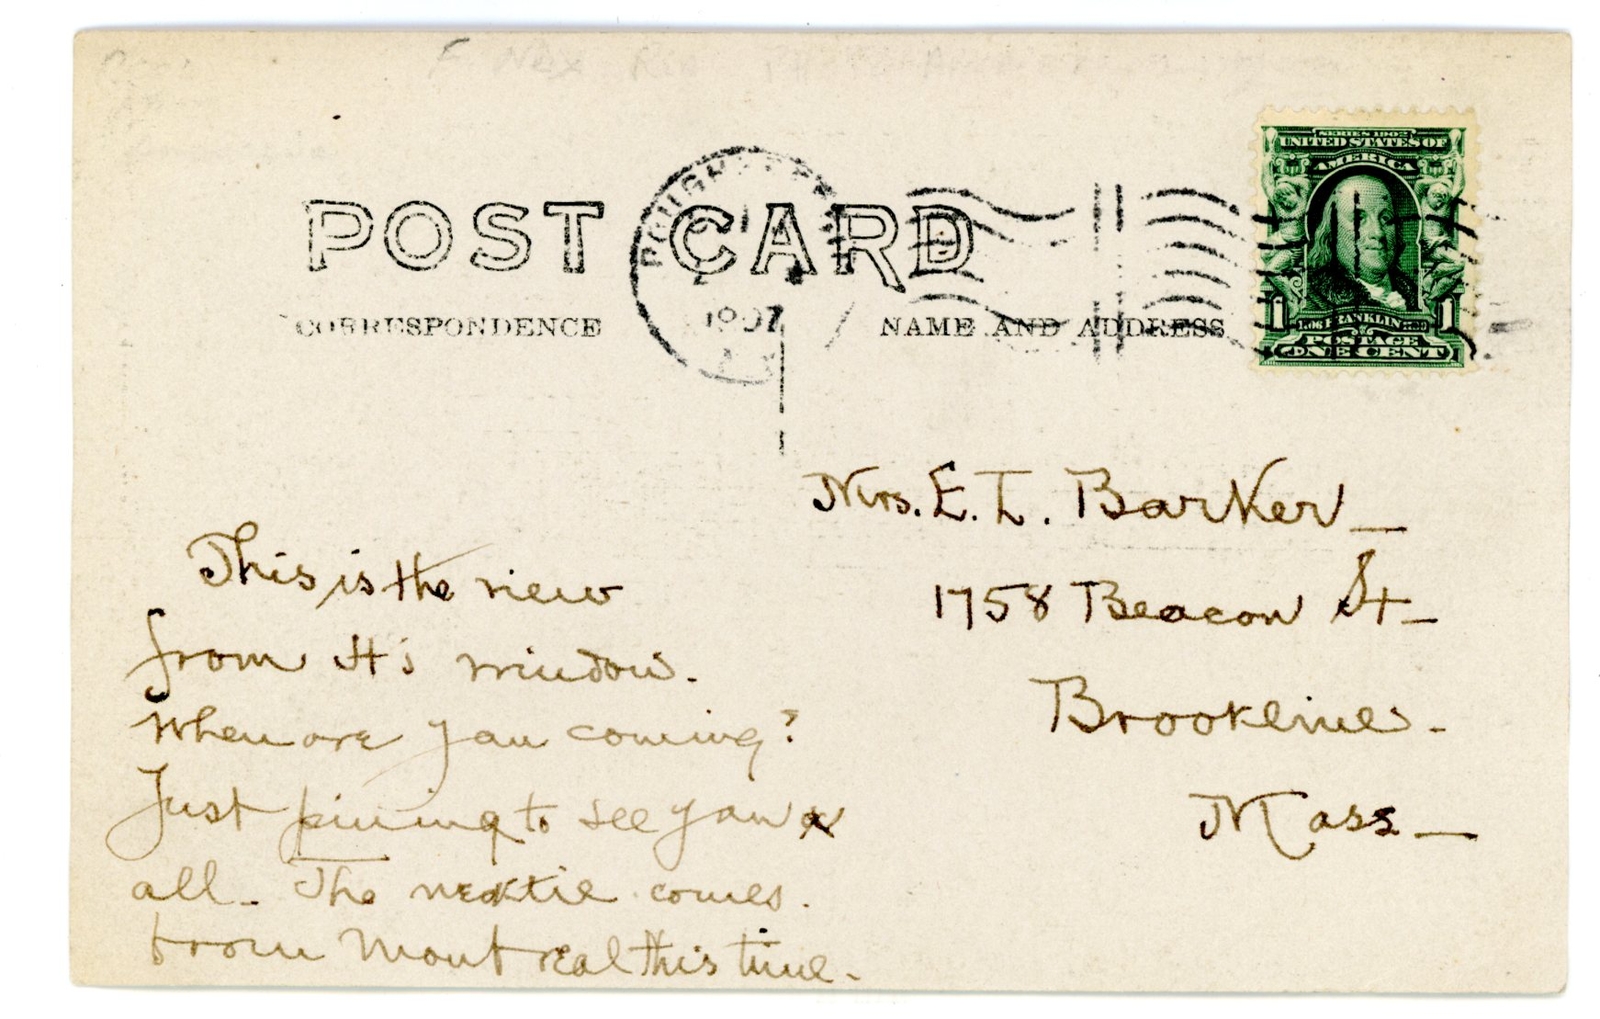 POST CARD
CORRESPONDENCE
NAME AND ADDRESS
1907
SERIES 1902
UNITED STATES OF
AMERICA
FRANKLIN
1 1
POSTAGE
ONE CENT
Mrs. E. L. Barker
1758 Beacon St
Brookline.
Mass
This is the view
from H's window.
When are you coming?
Just pining to see you
all. The necktie comes.
from Montreal this time.